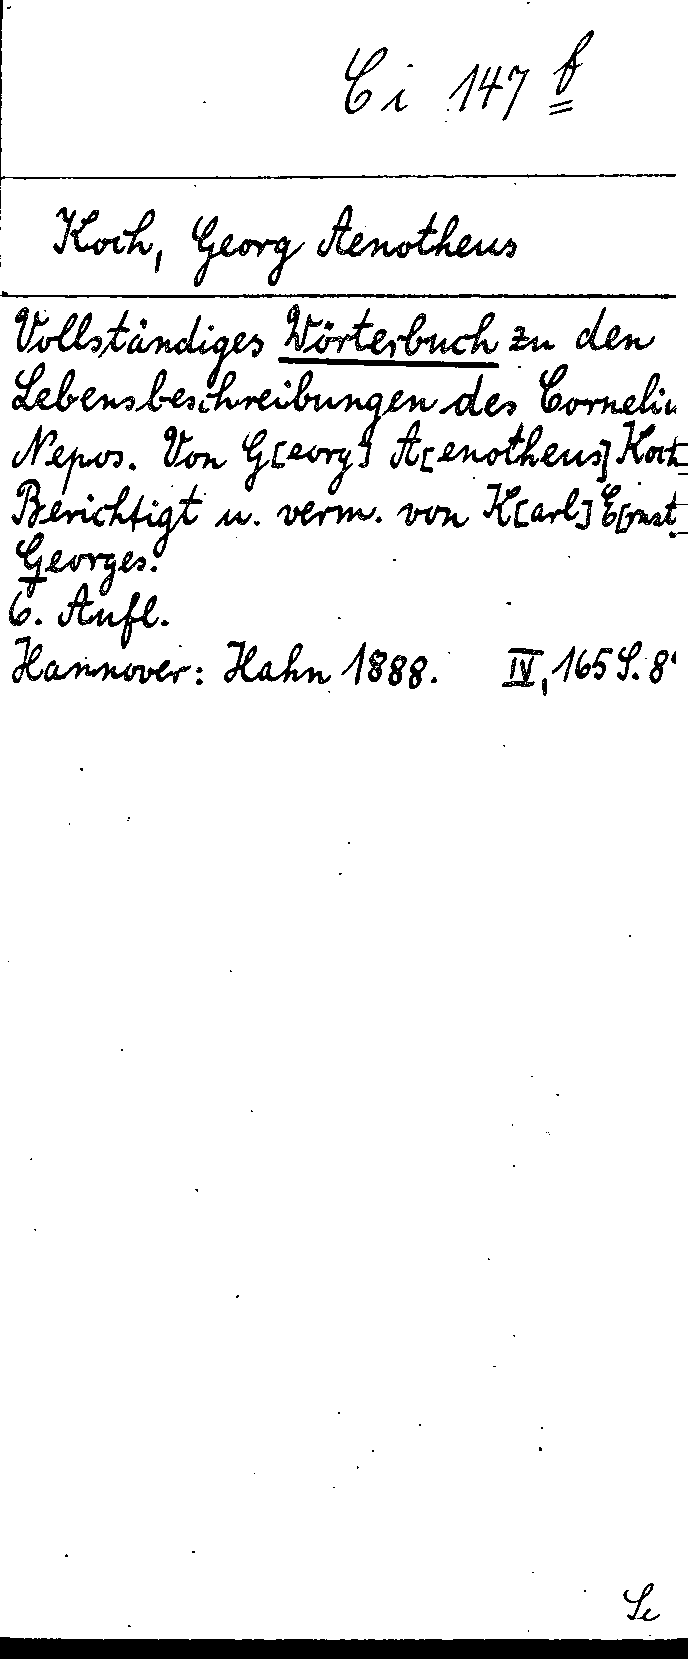 Ci 147 f
Koch, Georg Aenotheus
Vollständiges Wörterbuch zu den
Lebensbeschreibungen des Corneliu
Nepos. Von G[eorg] A[enotheus] Koch
Berichtigt u. verm. von K[arl] E[rnst]
Georges.
6. Aufl.
Hannover: Hahn 1888. IV, 165 S. 8°
Se